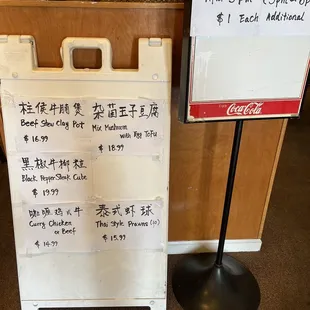 $1 Each Additional
Coca-Cola
柱侯牛腩煲
Beef Stew Clay Pot
$16.99
杂菌玉子豆腐
Mix Mushroom
with Egg Tofu
$18.99
黑椒牛柳粒
Black Pepper Steak Cube
$19.99
咖喱鸡 牛
Curry Chicken
or Beef
$14.99
泰式虾球
Thai Style Prawns
$15.99